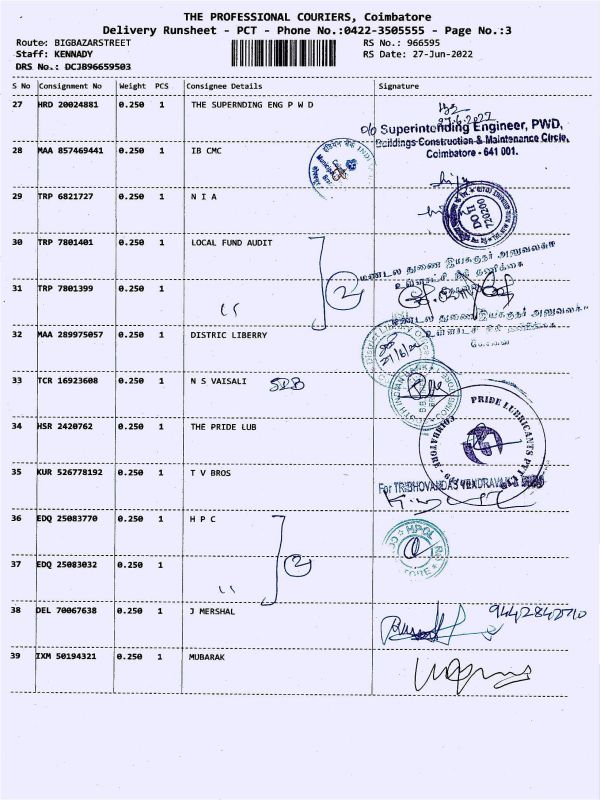 THE PROFESSIONAL COURIERS, Coimbatore
Delivery Runsheet - PCT - Phone No.:0422-3505555 - Page No.:3
Route: BIGBAZARSTREET RS No.: 966595
Staff: KENNADY RS Date: 27-Jun-2022
DRS No.: DCJB96659503
S No Consignment No Weight PCS Consignee Details Signature
27 HRD 20024881 0.250 1 THE SUPERNDING ENG P W D
27.6.2022
O/o Superintending Engineer, PWD,
Buildings Construction & Maintenance Circle,
Coimbatore - 641 001.
28 MAA 857469441 0.250 1 IB CMC
29 TRP 6821727 0.250 1 N I A
DO II
720200
30 TRP 7801401 0.250 1 LOCAL FUND AUDIT
2
மண்டல துணை இயக்குநர் அலுவலகம்
உள்ளாட்சி நிதி தணிக்கை
31 TRP 7801399 0.250 1 "
மண்டல துணை இயக்குநர் அலுவலகம்
உள்ளாட்சி நிதி தணிக்கை
கோவை
32 MAA 289975057 0.250 1 DISTRIC LIBERRY
District Library
33 TCR 16923608 0.250 1 N S VAISALI SIB
SOUTH INDIAN BANK
34 HSR 2420762 0.250 1 THE PRIDE LUB
PRIDE LUBRICANTS PVT
COIMBATORE
35 KUR 526778192 0.250 1 T V BROS
For TRIBHOVANDAS
36 EDQ 25083770 0.250 1 H P C
2
HPCL
37 EDQ 25083032 0.250 1 "
38 DEL 70067638 0.250 1 J MERSHAL
9442842710
39 IXM 50194321 0.250 1 MUBARAK